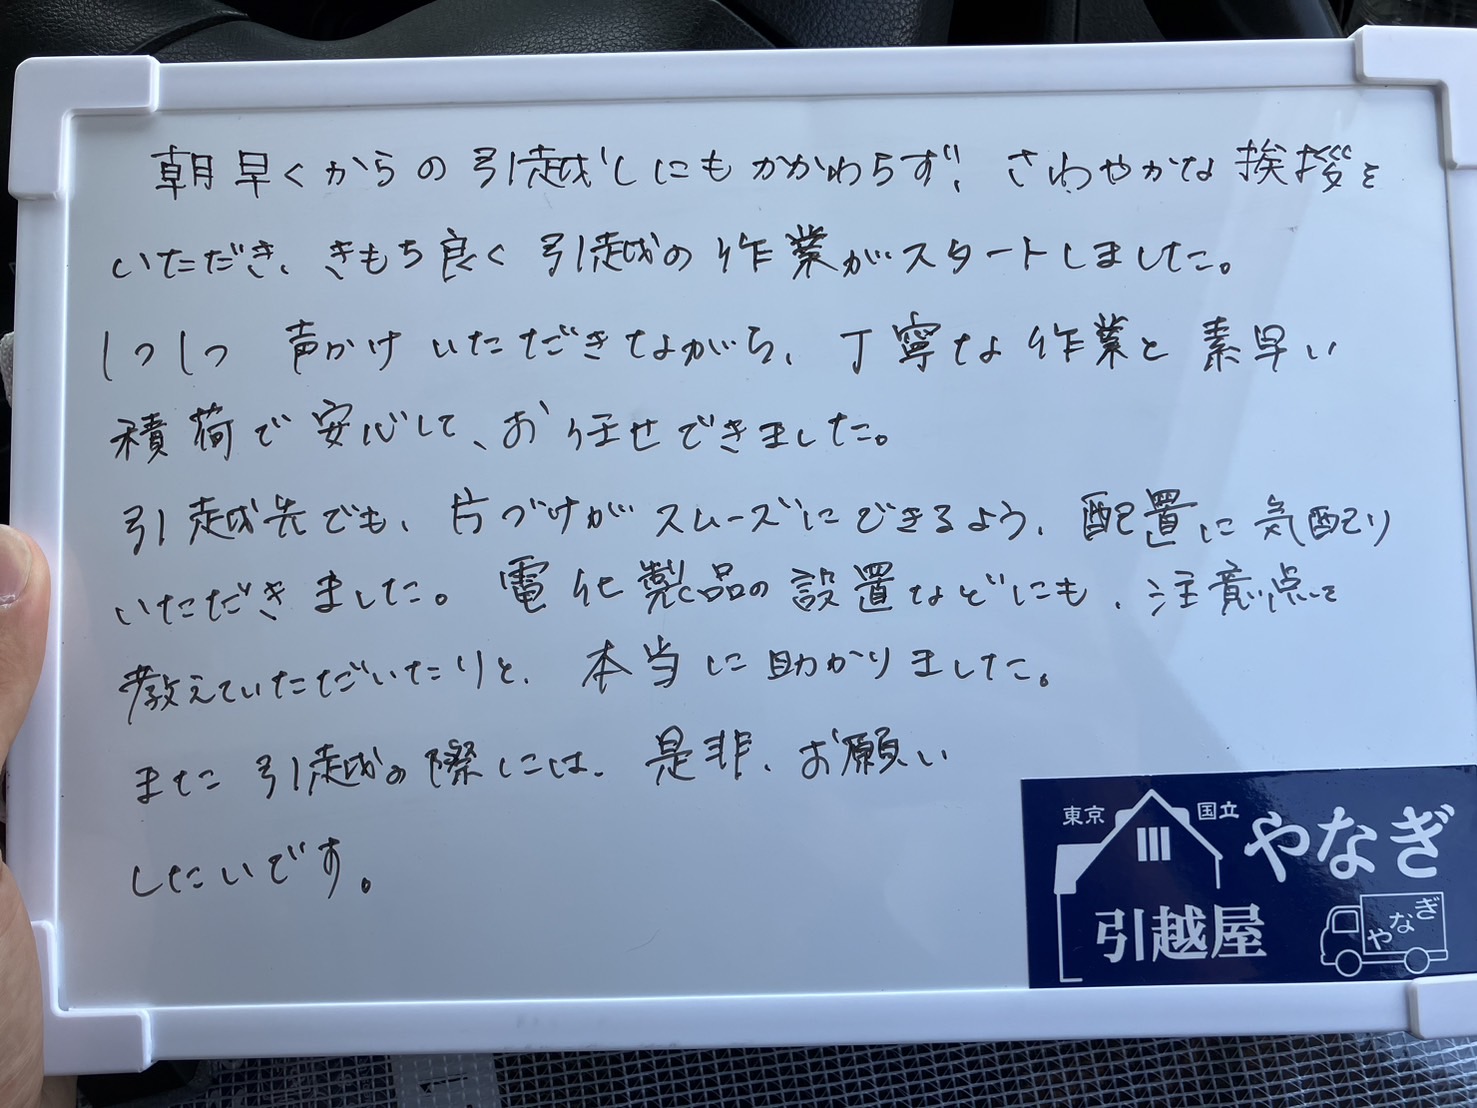 朝早くからの引越しにもかかわらず、さわやかな挨拶を
いただき、きもち良く引越の作業がスタートしました。
1つ1つ 声かけいただきながら、丁寧な作業と素早い
積荷で安心して、お任せできました。
引越先でも、片づけがスムーズにできるよう、配置に気配り
いただきました。電化製品の設置などにも、注意点を
教えていただいたりと、本当に助かりました。
また引越の際には、是非、お願い
したいです。
東京 国立 やなぎ
引越屋
やなぎ